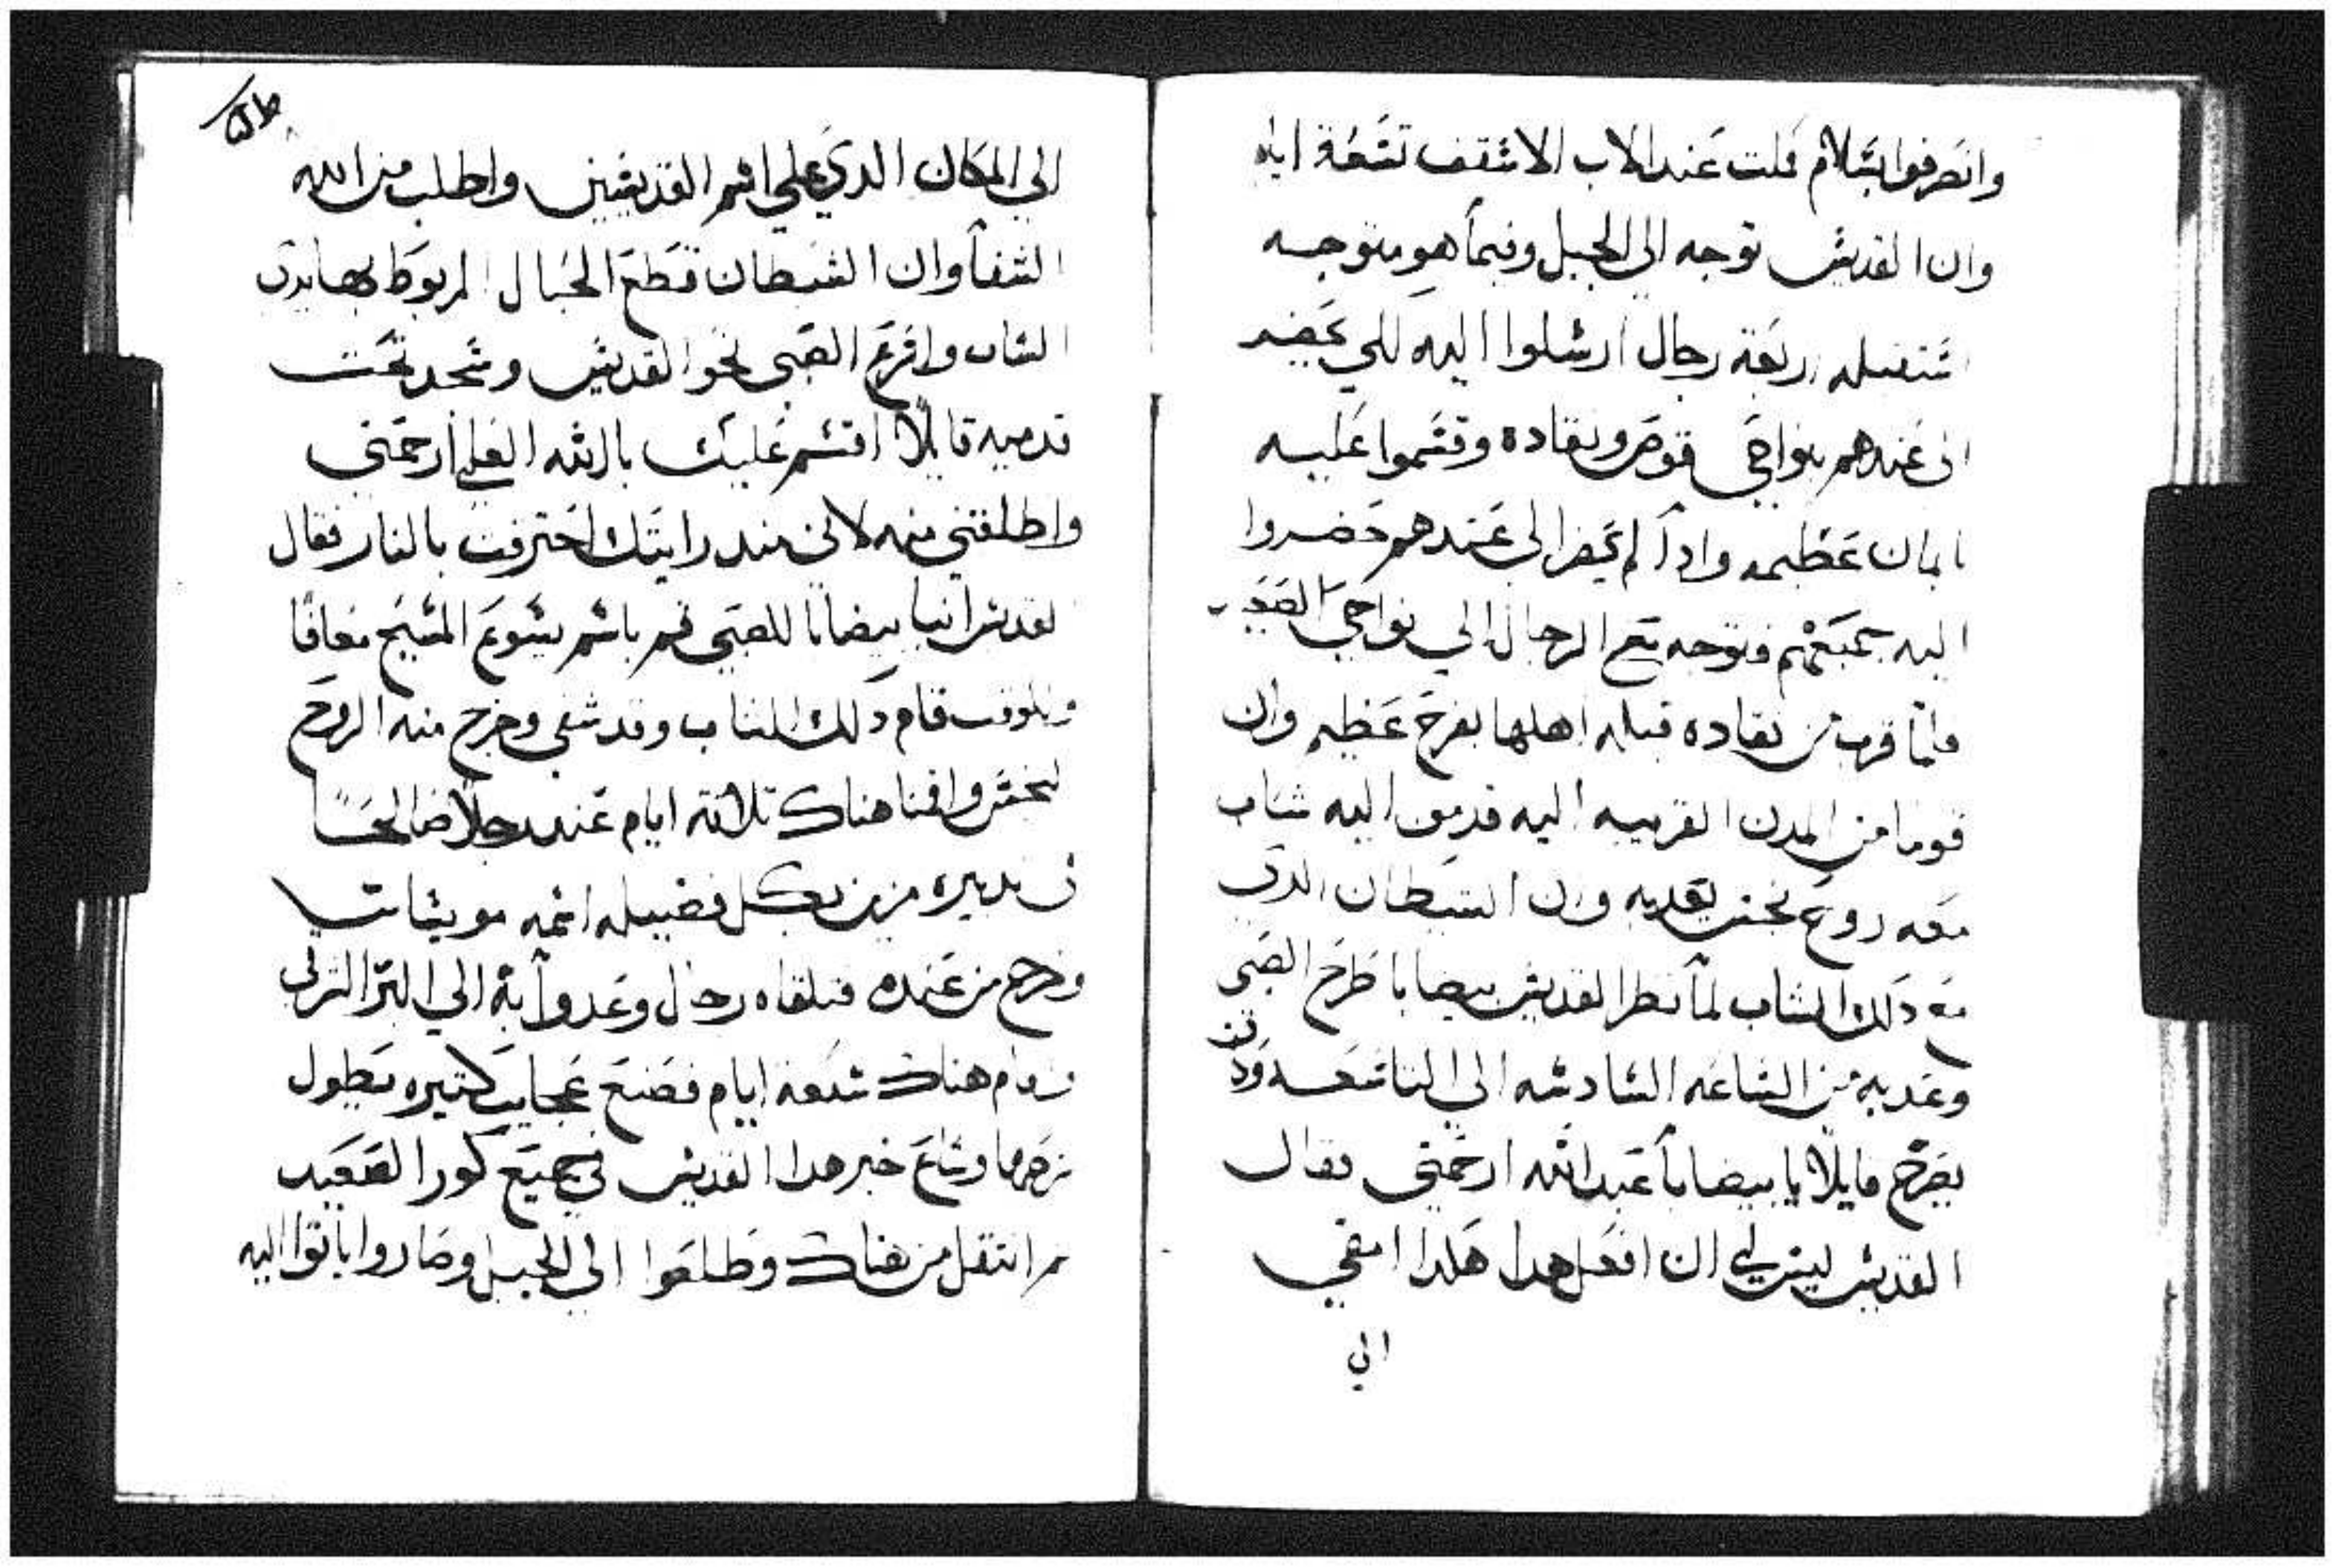 وانصرفوا بسلام مكت عند الاب الاسقف تسعة ايام
وان القديس توجه الي الجبل وفيما هو متوجه
استقبله اربعة رجال ارسلوا اليه لكي يحضر
الي عندهم بنواحي قوص ونقاده وقسموا عليه
بايمان عظيمه وادا لم يحضر الي عندهم حضروا
اليه جميعهم فتوجه مع الرجال الي نواحي الصعيد
فلما قرب من نقاده قبله اهلها بفرح عظيم وان
قوما من المدن القريبه اليه قدموا اليه شاب
معه روح نجس يعديه وان الشيطان الدي
مع دلك الشاب لما نظر القديس بيضابا طرح الصبي
وعدبه من الساعه السادسه الي التاسعه وكان
يصرخ قايلا يا بيضابا عبد الله ارحمني فقال
القديس ليس لي ان افعل هدا هكدا امضي
الي
الي المكان الدي علي اسم القديسين واطلب من الله
الشفا وان الشيطان قطع الحبال المربوط بها يدي
الشاب واقرع الصبي نحو القديس وسجد تحت
قدميه قايلا اقسم عليك بالله العلي ارحمني
واطلقني منه لاني مند رايتك احترقت بالنار فقال
القديس انبا بيضابا للصبي قم باسم يسوع المسيح معافا
وبالوقت قام دلك الشاب وقد شفي وخرج منه الروح
النجس واقمنا هناك تلاتة ايام عند رجلا صالحا
في تدبيره مزين بكل فضيله اسمه مويساس
وخرج من عنده فتلقاه رجال وعدوا به الي البر الشرقي
واقام هناك سبعة ايام فصنع عجايب كتيره يطول
شرحها وشاع خبر هدا القديس في جميع كور الصعيد
تم انتقل من هناك وطلعوا الي الجبل وصاروا ياتوا اليه